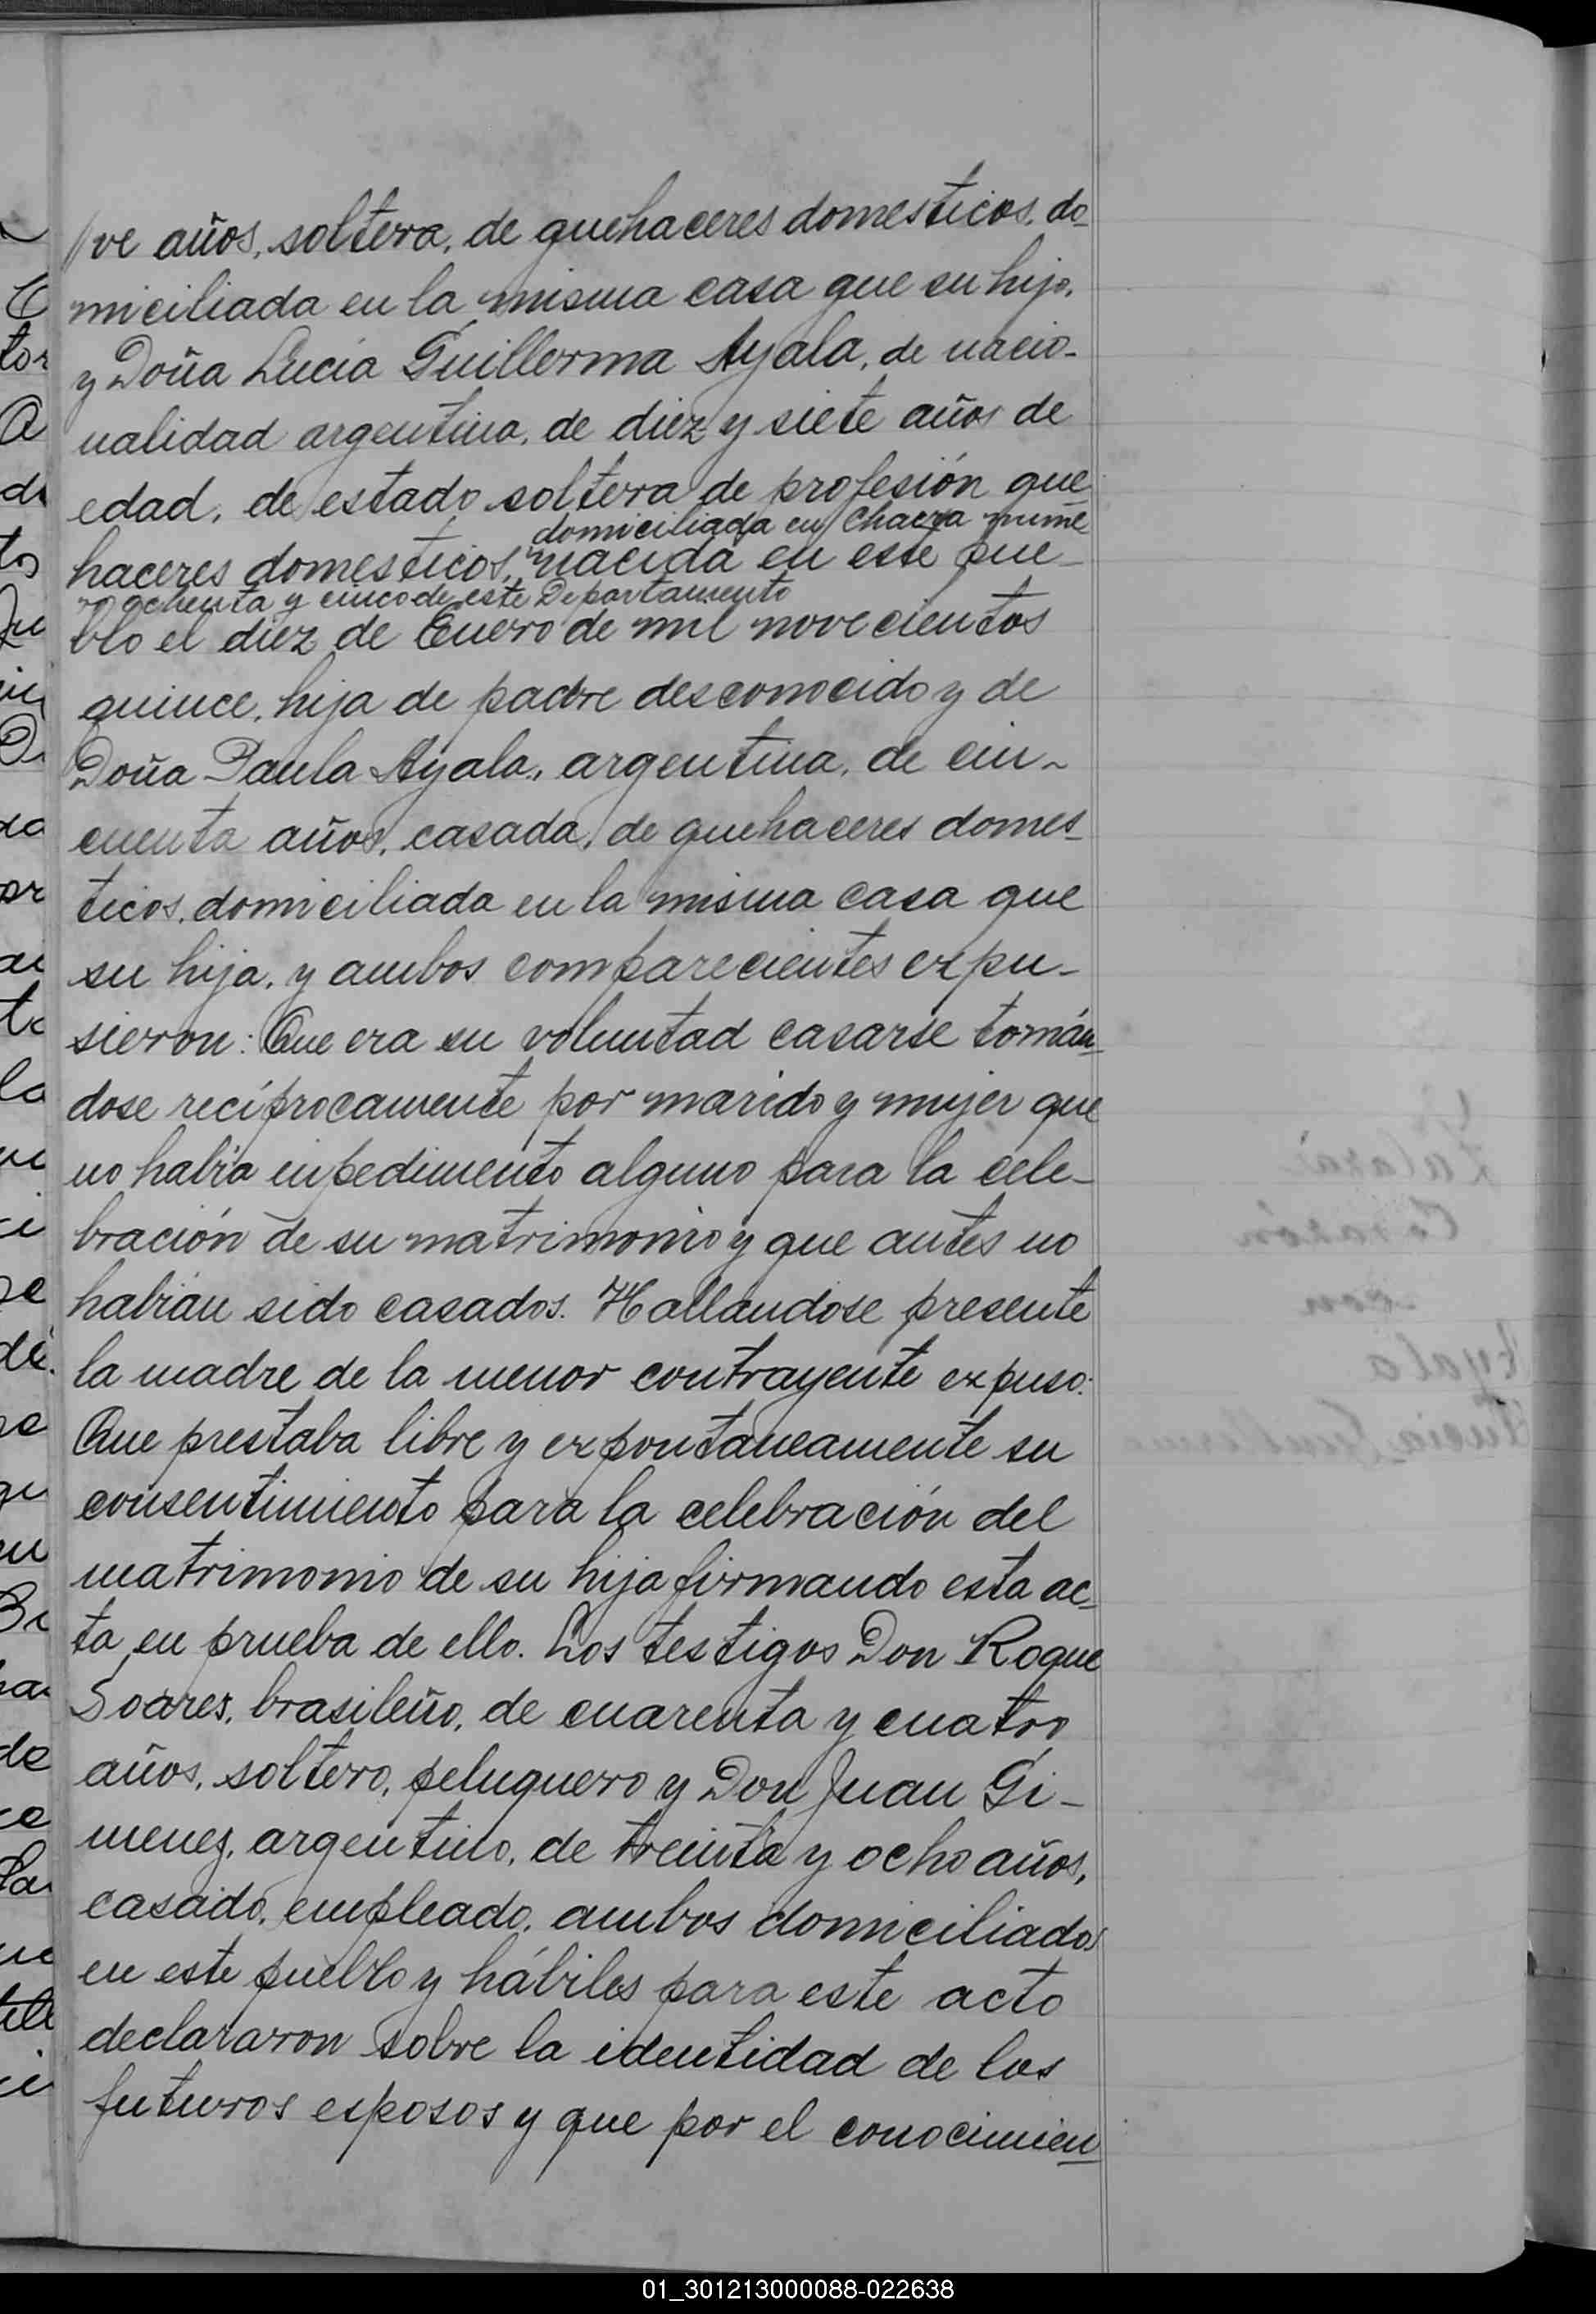 //ve años, soltera, de quehaceres domesticos, do-
miciliada en la misma casa que su hijo,
y Doña Lucía Guillerma Ayala, de nacio-
nalidad argentina, de diez y siete años de
edad, de estado soltera de profesión que
domiciliada en Chacra núme
haceres domesticos, nacida en este pue-
ro ochenta y cinco de este Departamento
blo el diez de Enero de mil novecientos
quince, hija de padre desconocido y de
Doña Paula Ayala, argentina, de cin-
cuenta años, casada, de quehaceres domes-
ticos, domiciliada en la misma casa que
su hija, y ambos comparecientes expu-
sieron: Que era su voluntad casarse tomán-
dose recíprocamente por marido y mujer que
no había inpedimento alguno para la cele-
bración de su matrimonio y que antes no
habían sido casados. Hallandose presente
la madre de la menor contrayente expuso:
Que prestaba libre y expontaneamente su
consentimiento para la celebración del
matrimonio de su hija firmando esta ac-
ta en prueba de ello. Los testigos Don Roque
Soares, brasileño, de cuarenta y cuatro
años, soltero, peluquero y Don Juan Gi-
menez, argentino, de treinta y ocho años,
casado, empleado, ambos domiciliados
en este pueblo y hábiles para este acto
declararon sobre la identidad de los
futuros esposos y que por el conocimien
01_301213000088-022638